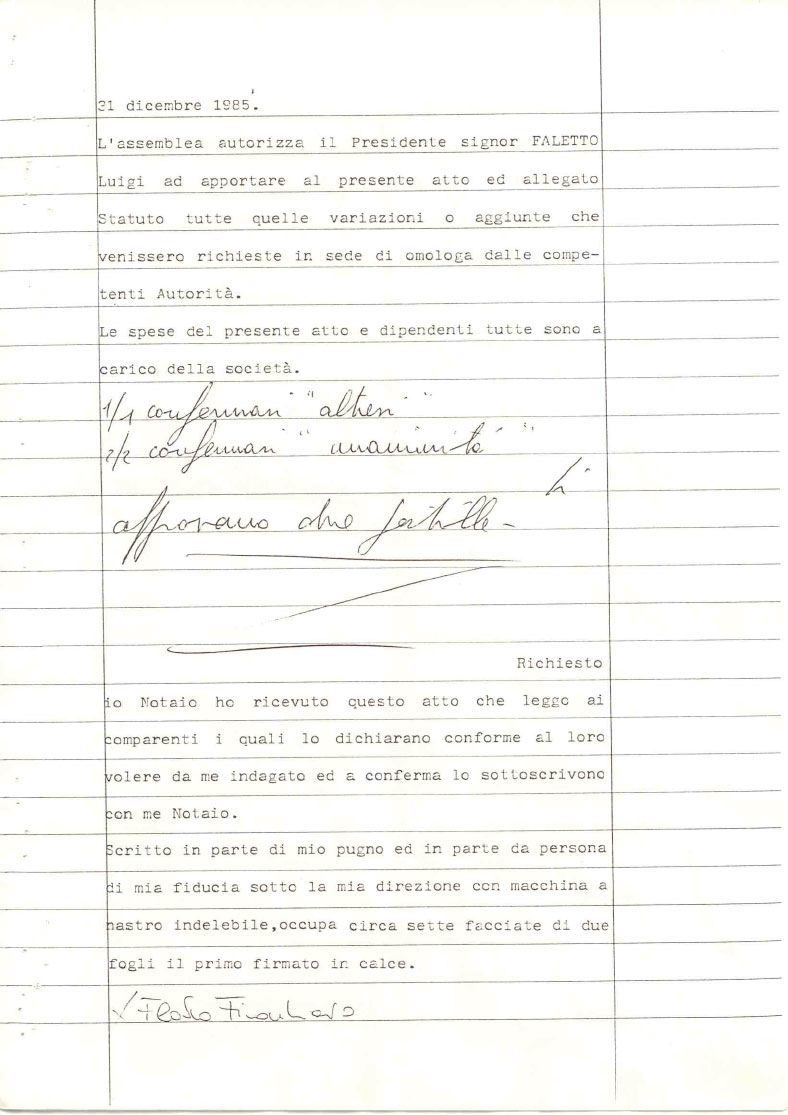 31 dicembre 1985.
L'assemblea autorizza il Presidente signor FALETTO
Luigi ad apportare al presente atto ed allegato
Statuto tutte quelle variazioni o aggiunte che
venissero richieste in sede di omologa dalle compe-
tenti Autorità.
Le spese del presente atto e dipendenti tutte sono a
carico della società.
1/1 conferman "
2/2 conferman "unanimità"
approvano due postille -
Richiesto
io Notaio ho ricevuto questo atto che leggo ai
comparenti i quali lo dichiarano conforme al loro
volere da me indagato ed a conferma lo sottoscrivono
con me Notaio.
Scritto in parte di mio pugno ed in parte da persona
di mia fiducia sotto la mia direzione con macchina a
nastro indelebile,occupa circa sette facciate di due
fogli il primo firmato in calce.